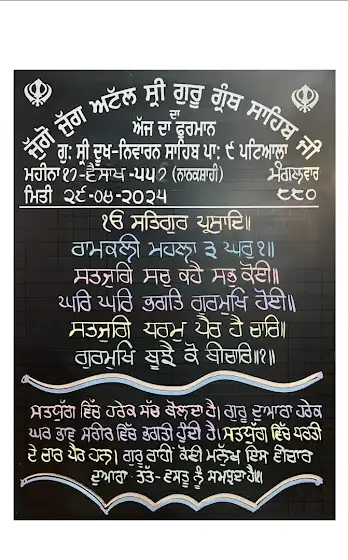 ਜੁੱਗੋ ਜੁੱਗ ਅਟੱਲ ਸ੍ਰੀ ਗੁਰੂ ਗ੍ਰੰਥ ਸਾਹਿਬ ਜੀ
ਦਾ
ਅੱਜ ਦਾ ਫੁਰਮਾਨ
ਗੁ: ਸ੍ਰੀ ਦੁਖ-ਨਿਵਾਰਨ ਸਾਹਿਬ ਪਾ: ੯ ਪਟਿਆਲਾ
ਮਹੀਨਾ ੧੭-ਵੈਸਾਖ-੫੫੭ (ਨਾਨਕਸ਼ਾਹੀ) ਮੰਗਲਵਾਰ
ਮਿਤੀ ੨੯-੦੪-੨੦੨੫ ੮੮੦
ੴ ਸਤਿਗੁਰ ਪ੍ਰਸਾਦਿ॥
ਰਾਮਕਲੀ ਮਹਲਾ ੩ ਘਰੁ ੧॥
ਸਤਜੁਗਿ ਸਚੁ ਕਹੈ ਸਭੁ ਕੋਈ॥
ਘਰਿ ਘਰਿ ਭਗਤਿ ਗੁਰਮੁਖਿ ਹੋਈ॥
ਸਤਜੁਗਿ ਧਰਮੁ ਪੈਰ ਹੈ ਚਾਰਿ॥
ਗੁਰਮੁਖਿ ਬੂਝੈ ਕੋ ਬੀਚਾਰਿ॥੧॥
ਸਤਯੁੱਗ ਵਿੱਚ ਹਰੇਕ ਸੱਚ ਬੋਲਦਾ ਹੈ। ਗੁਰੂ ਦੁਆਰਾ ਹਰੇਕ
ਘਰ ਭਾਵ ਸਰੀਰ ਵਿੱਚ ਭਗਤੀ ਹੁੰਦੀ ਹੈ। ਸਤਯੁੱਗ ਵਿੱਚ ਧਰਤੀ
ਦੇ ਚਾਰ ਪੈਰ ਹਨ। ਗੁਰੂ ਰਾਹੀਂ ਕੋਈ ਮਨੁੱਖ ਇਸ ਵੀਚਾਰ
ਦੁਆਰਾ ਤੱਤ-ਵਸਤੂ ਨੂੰ ਸਮਝਦਾ ਹੈ॥